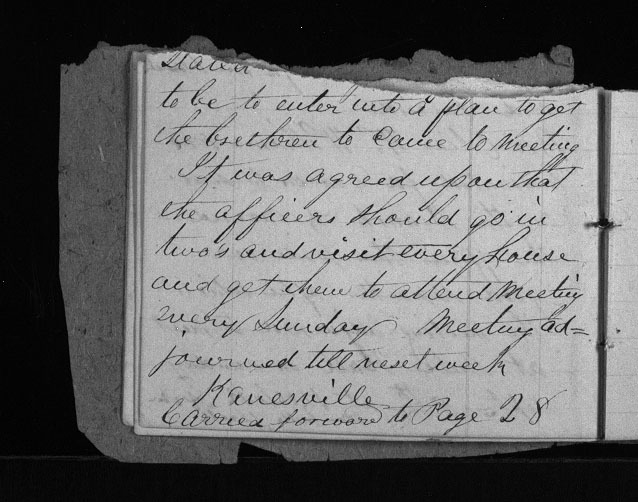 to be to enter into a plan to get
the brethren to come to meeting
It was agreed upon that
the officers should go in
two's and visit every house
and get them to attend Meeting
every Sunday Meeting ad=
journed till next week
Kanesville
Carried forward to Page 28